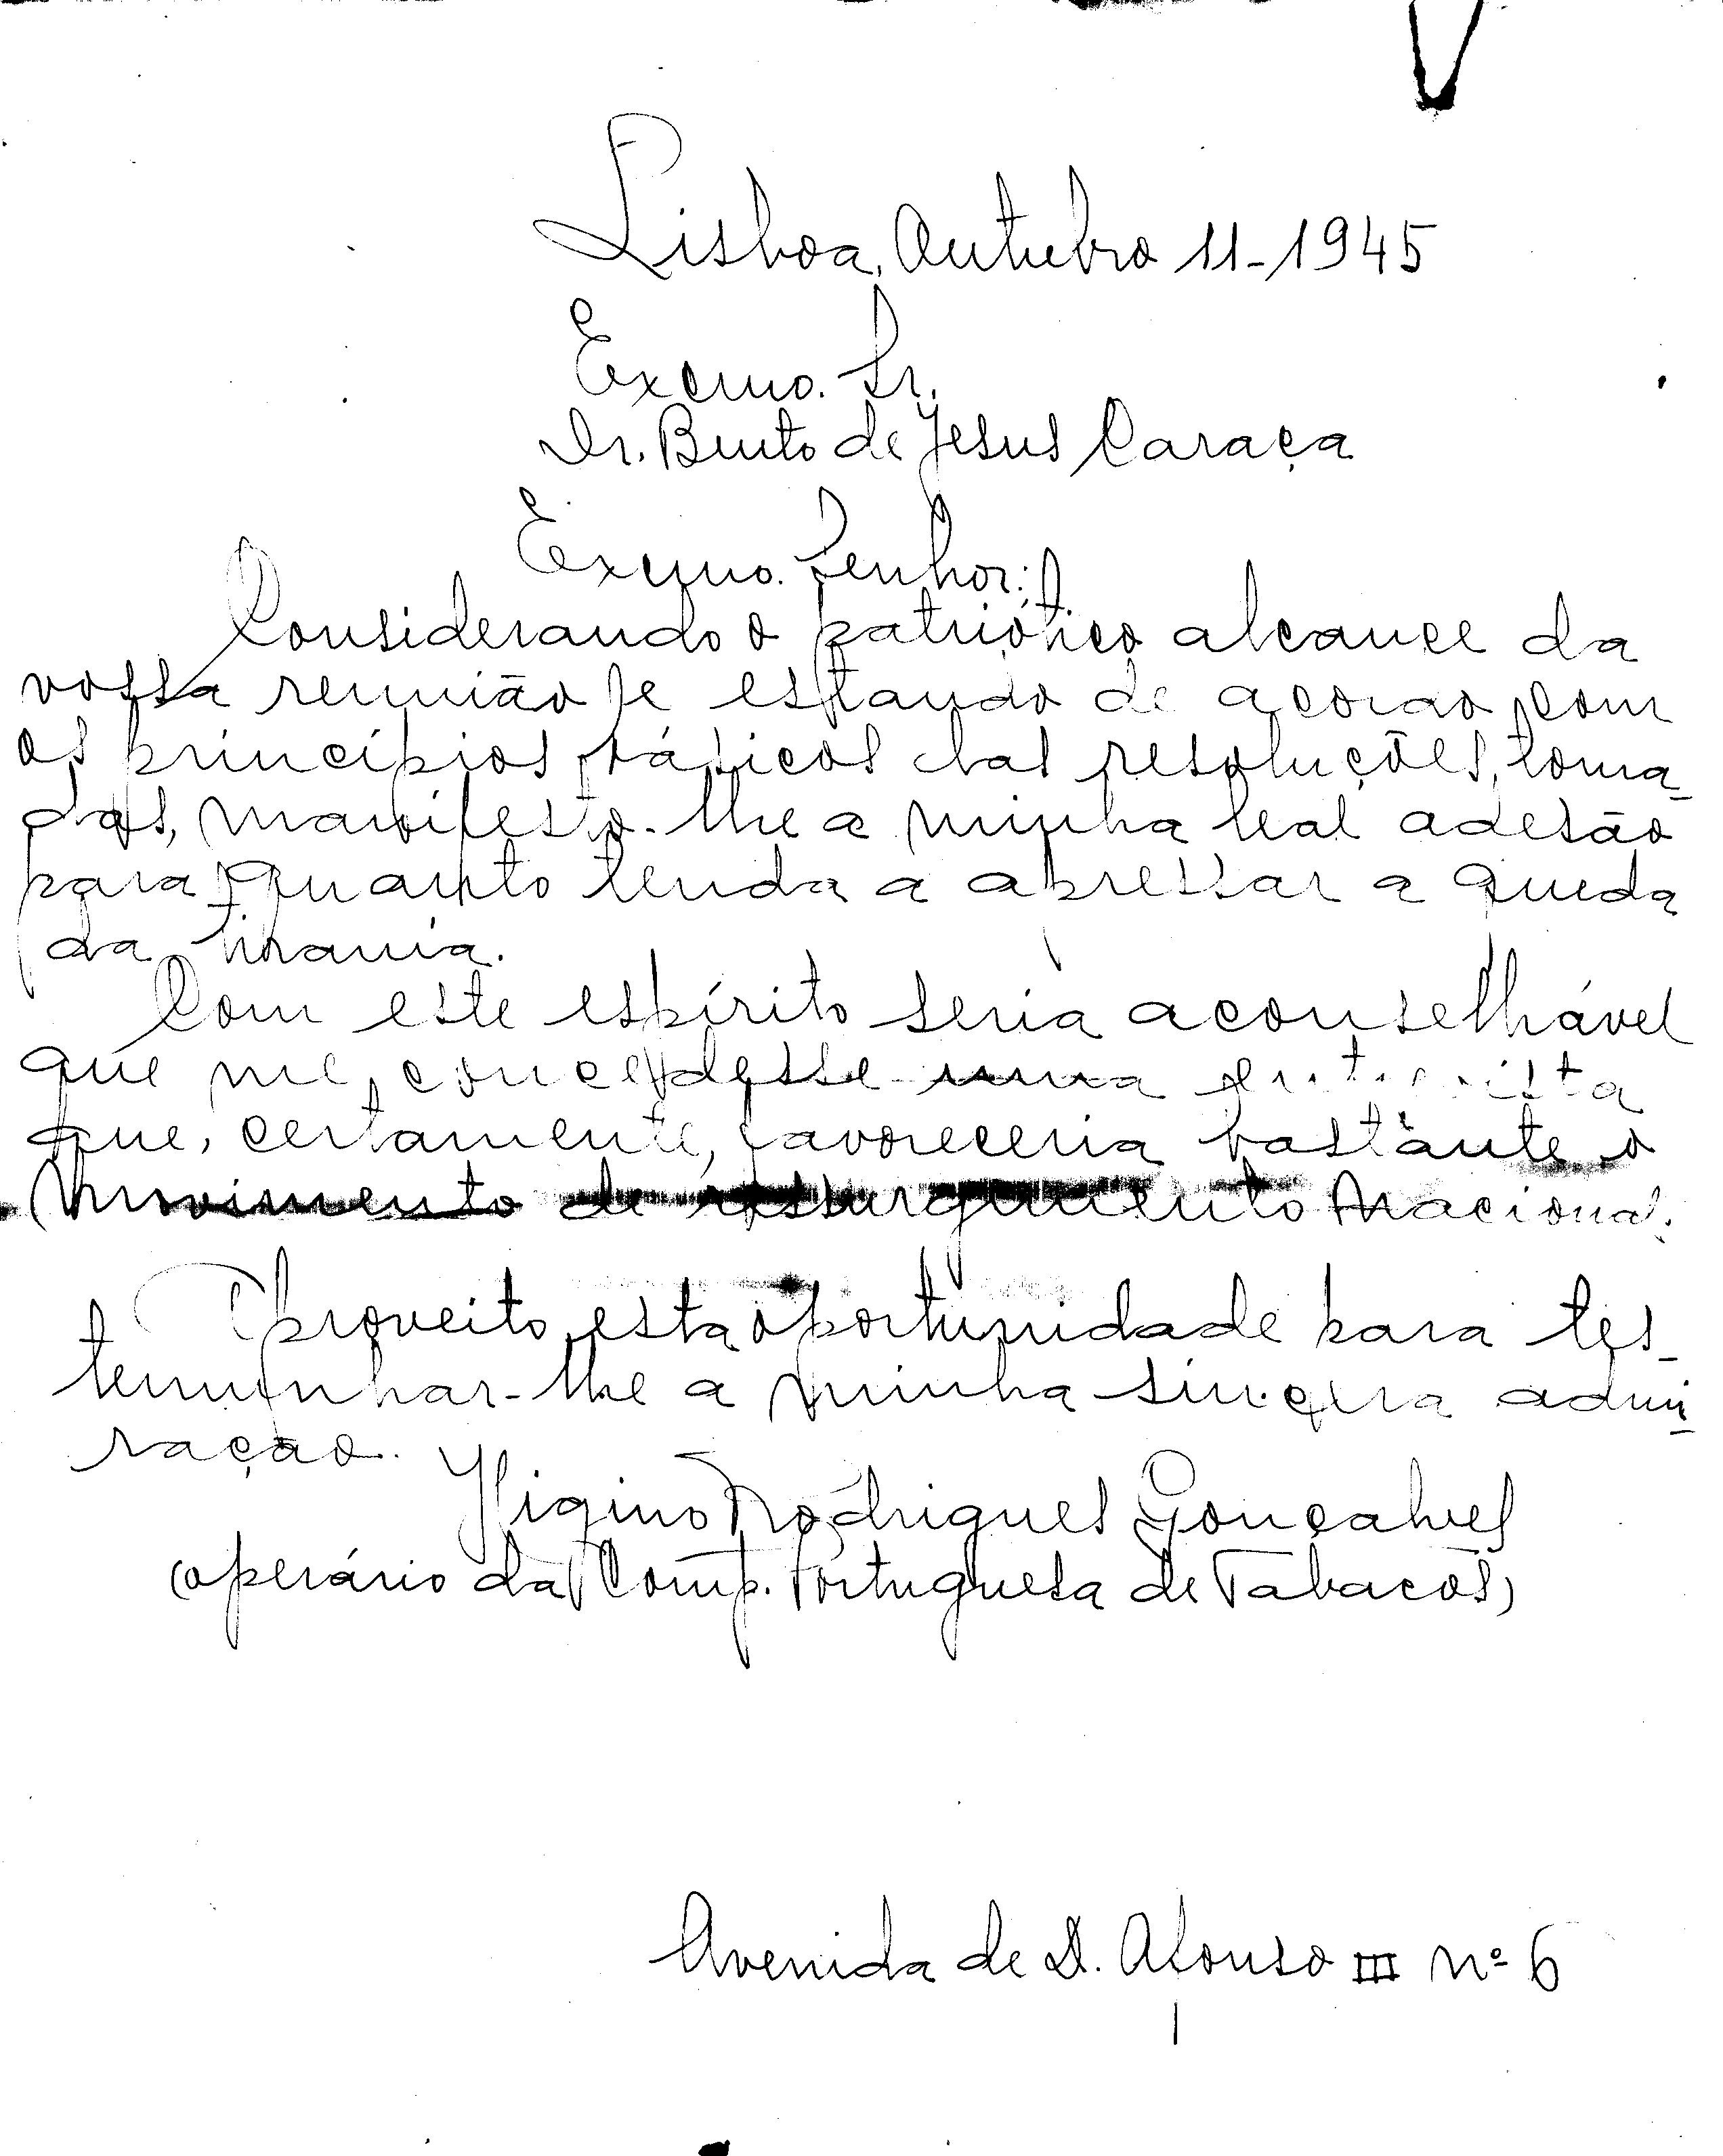 Lisboa, Outubro 11-1945
Excmo. Sr.
Dr. Bento de Jesus Caraça
Excmo. Senhor:
Considerando o patriótico alcance da
vossa reunião e estando de acordo com
os princípios básicos das resoluções, toma-
das, manifesto-lhe a minha leal adesão
para quanto tenda a apressar a queda
da tirania.
Com este espírito seria aconselhável
que me concedesse uma entrevista
que, certamente, favoreceria bastante o
Movimento de ressurgimento Nacional.
Aproveito esta oportunidade para tes-
temunhar-lhe a minha sincera admi-
ração.
Higino Rodrigues Gonçalves
(operário da Comp. Portuguesa de Tabacos)
Avenida de D. Afonso III nº 6